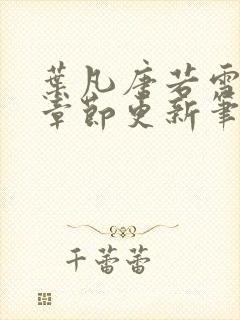 葉凡唐若雪
章節更新筆
千蕾蕾